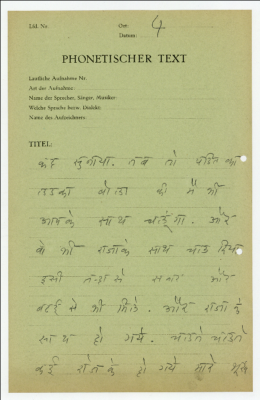 Lfd. Nr.
Ort: 4
Datum:
PHONETISCHER TEXT
Lautliche Aufnahme Nr.
Art der Aufnahme:
Name des Sprechers, Sängers, Musikers
Welche Sprache bezw. Dialekt:
Name des Aufnehmers:
TITEL:
कह सुनाया. तब तो पंडित का
लड़का बोला की मैं भी
आपके साथ चलूंगा. और
वे भी राजाके साथ चल दिया
इसी तरह से और
बढई से भी मिले. और राजा के
साथ हो गये. चलते चलते
कई रोज के हो गये मारे भूख